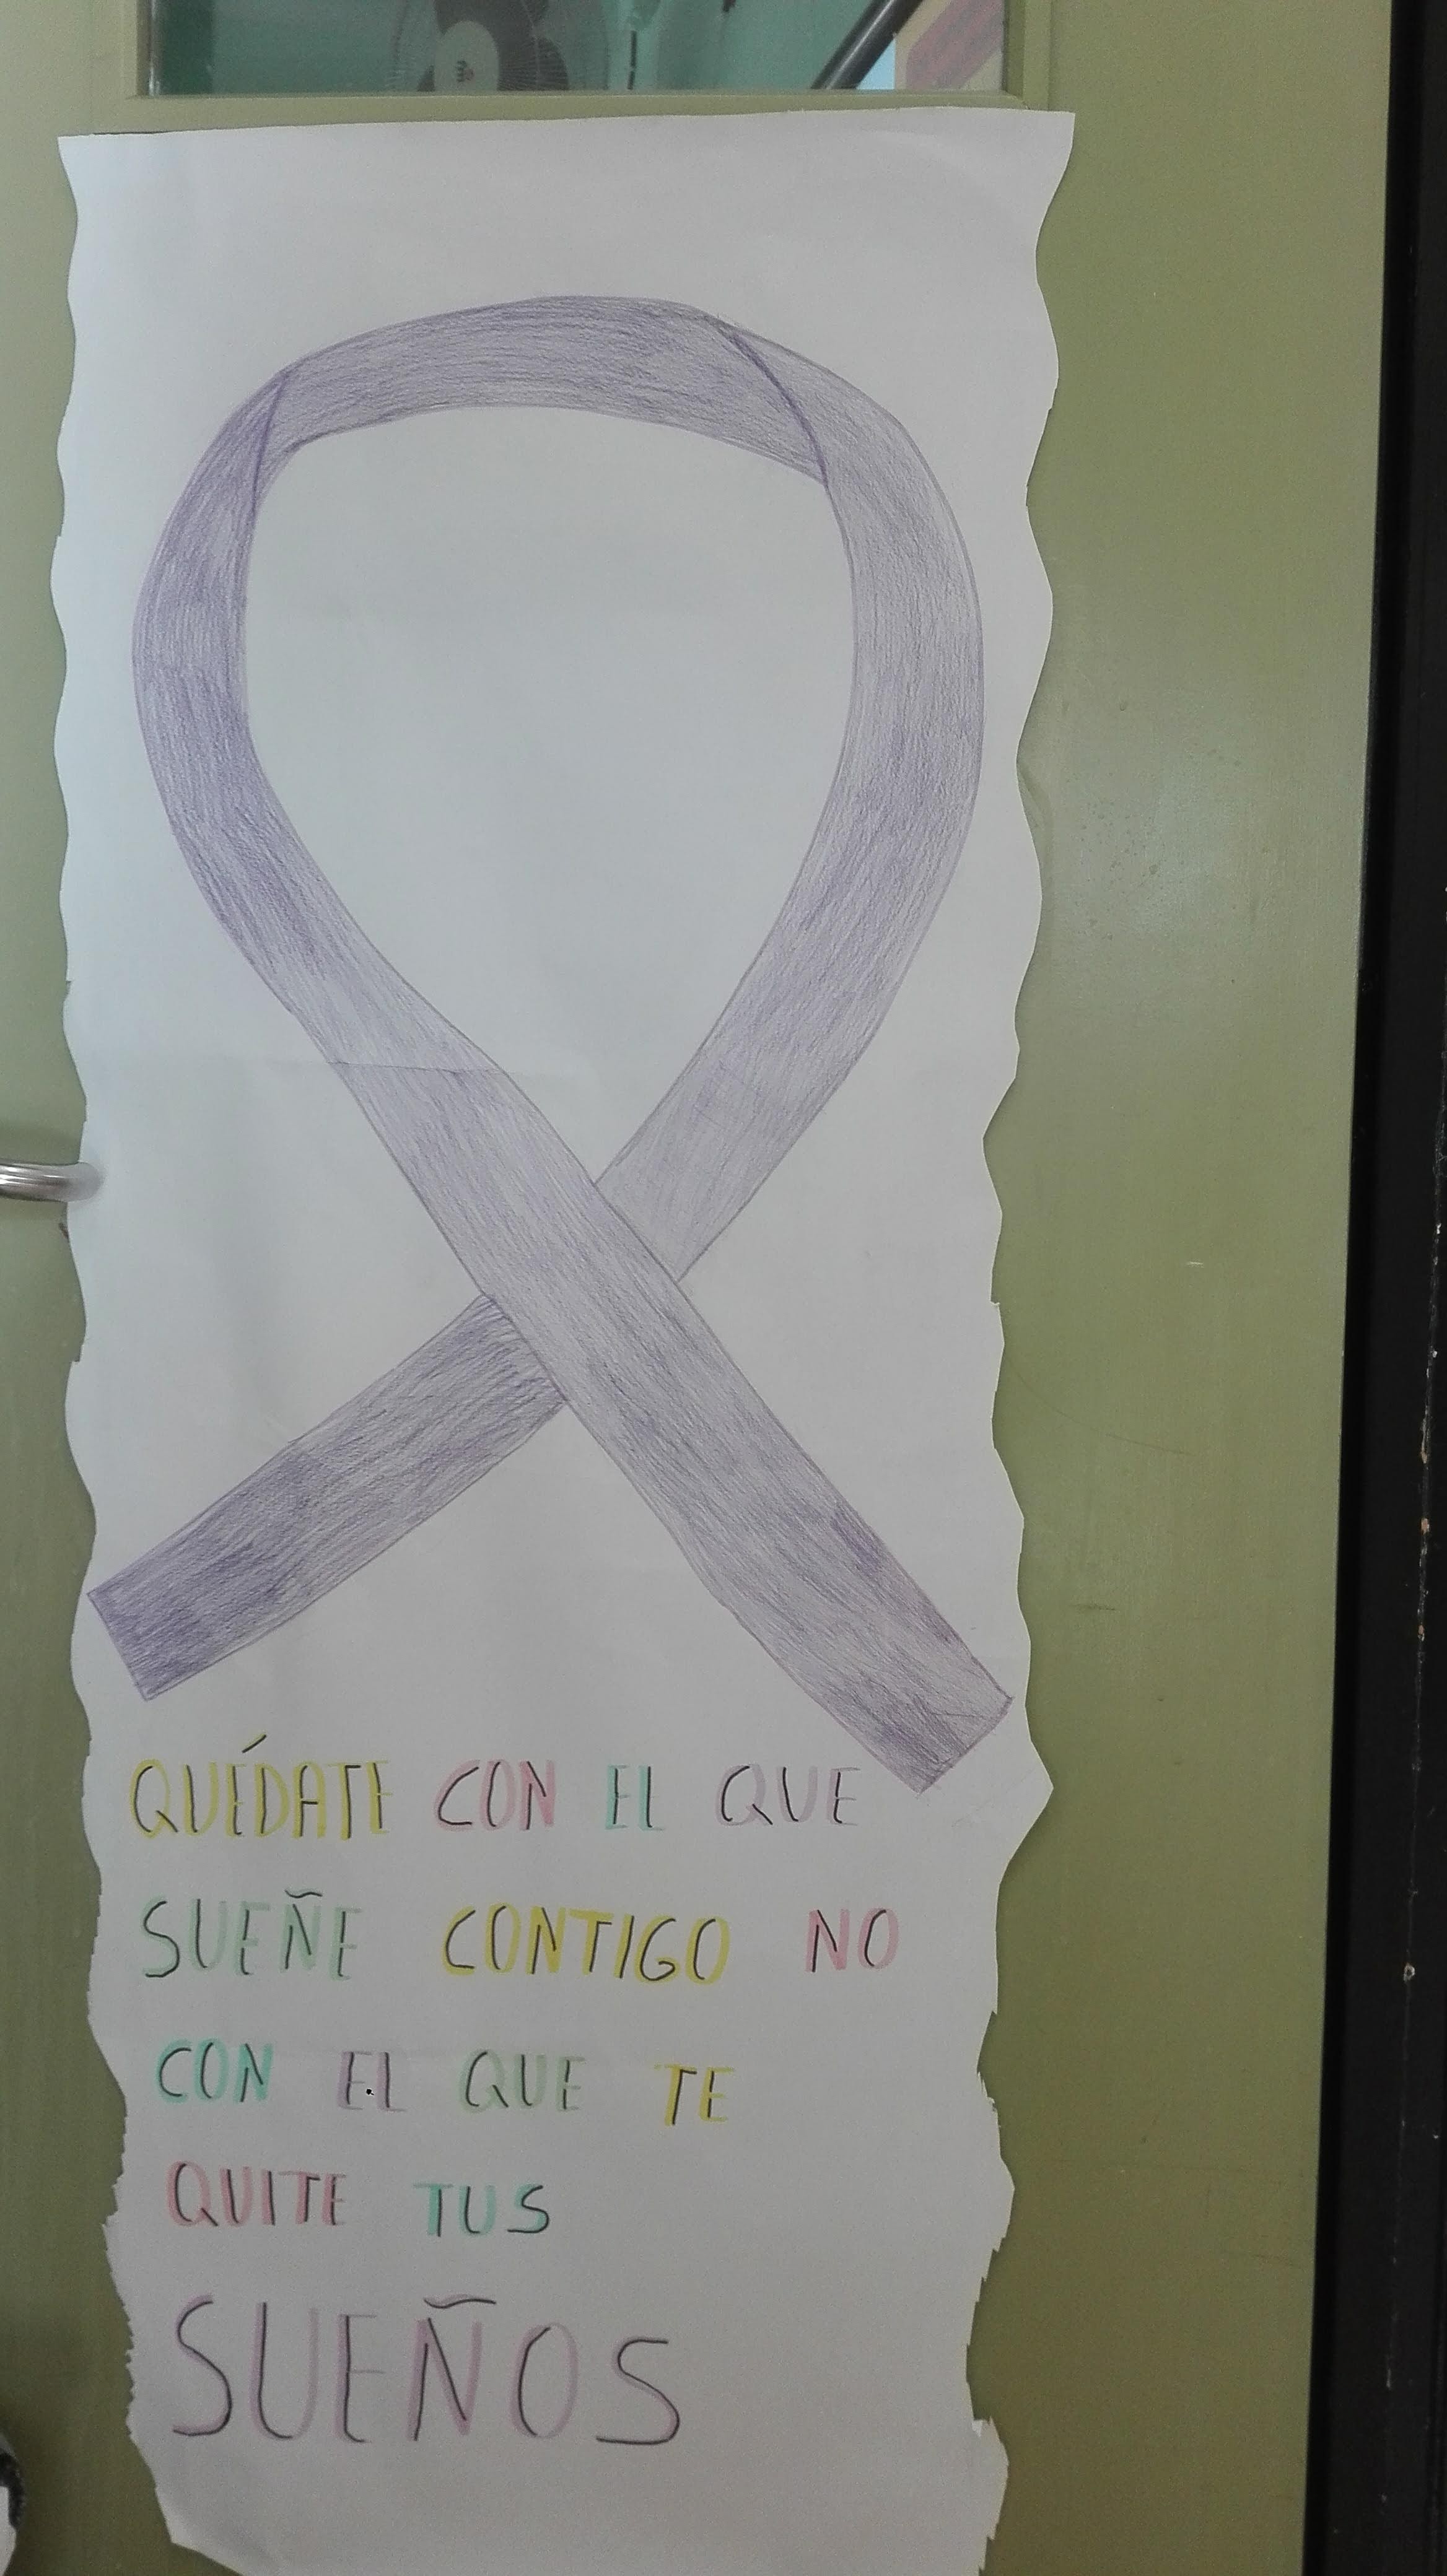 QUÉDATE CON EL QUE
SUEÑE CONTIGO NO
CON EL QUE TE
QUITE TUS
SUEÑOS